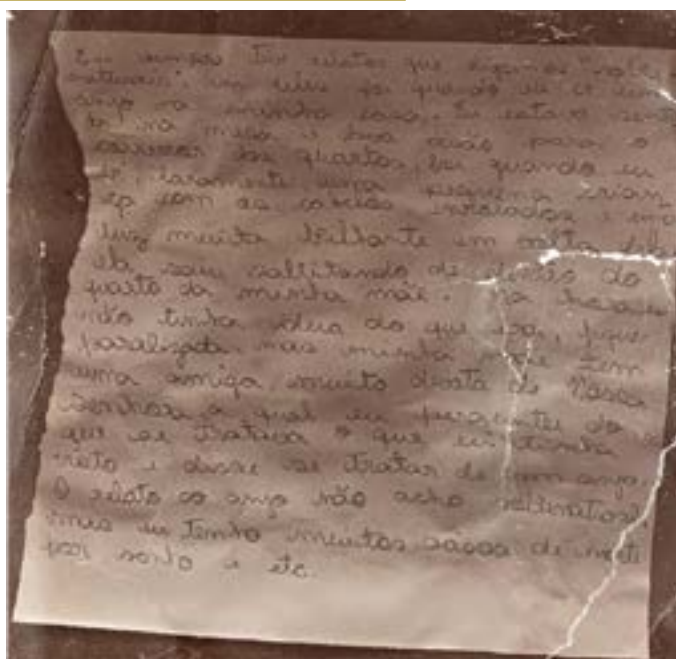 Eu sempre tive relatos que digamos "sobre
naturais", um deles foi quando eu vi um
anjo na minha casa. Eu estava sent
na mesa e dava para o
corredor dos quartos, foi quando eu
vi claramente uma pequena crian
ça com os cabelos enrolados e uma
luz muito brilhante em volta dela
ela saiu saltitando de dentro do
quarto da minha mãe. Na hora eu
não tinha ideia do que era, fiquei
paralizada mas minha mãe tem
uma amiga muito devota de Nossa
Senhora a qual eu perguntei do
que se tratava o que eu tinha
visto e disse se tratar de um anjo.
O relato do anjo não acho
mas eu tenho muitos casos de
por sonho e etc.